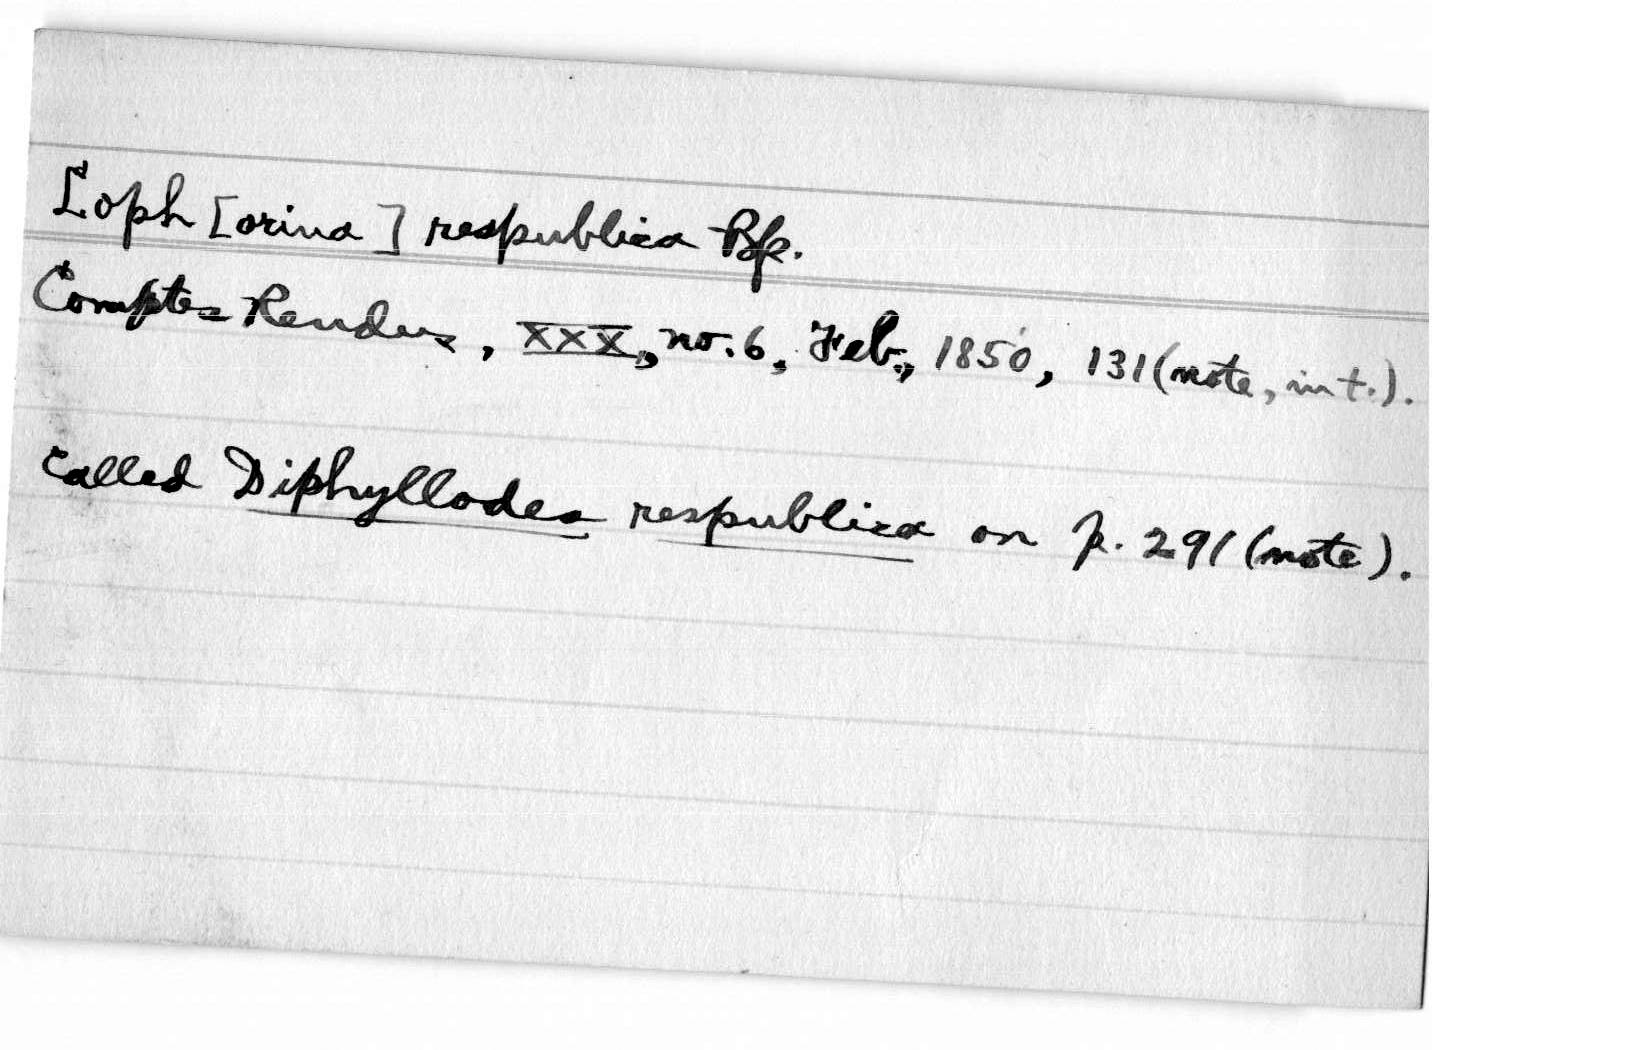 Loph [orina] respublica Bp.
Comptes Rendus, XXX, no. 6, Feb., 1850, 131 (note, in t.).
called Diphyllodes respublica on p. 291 (note).